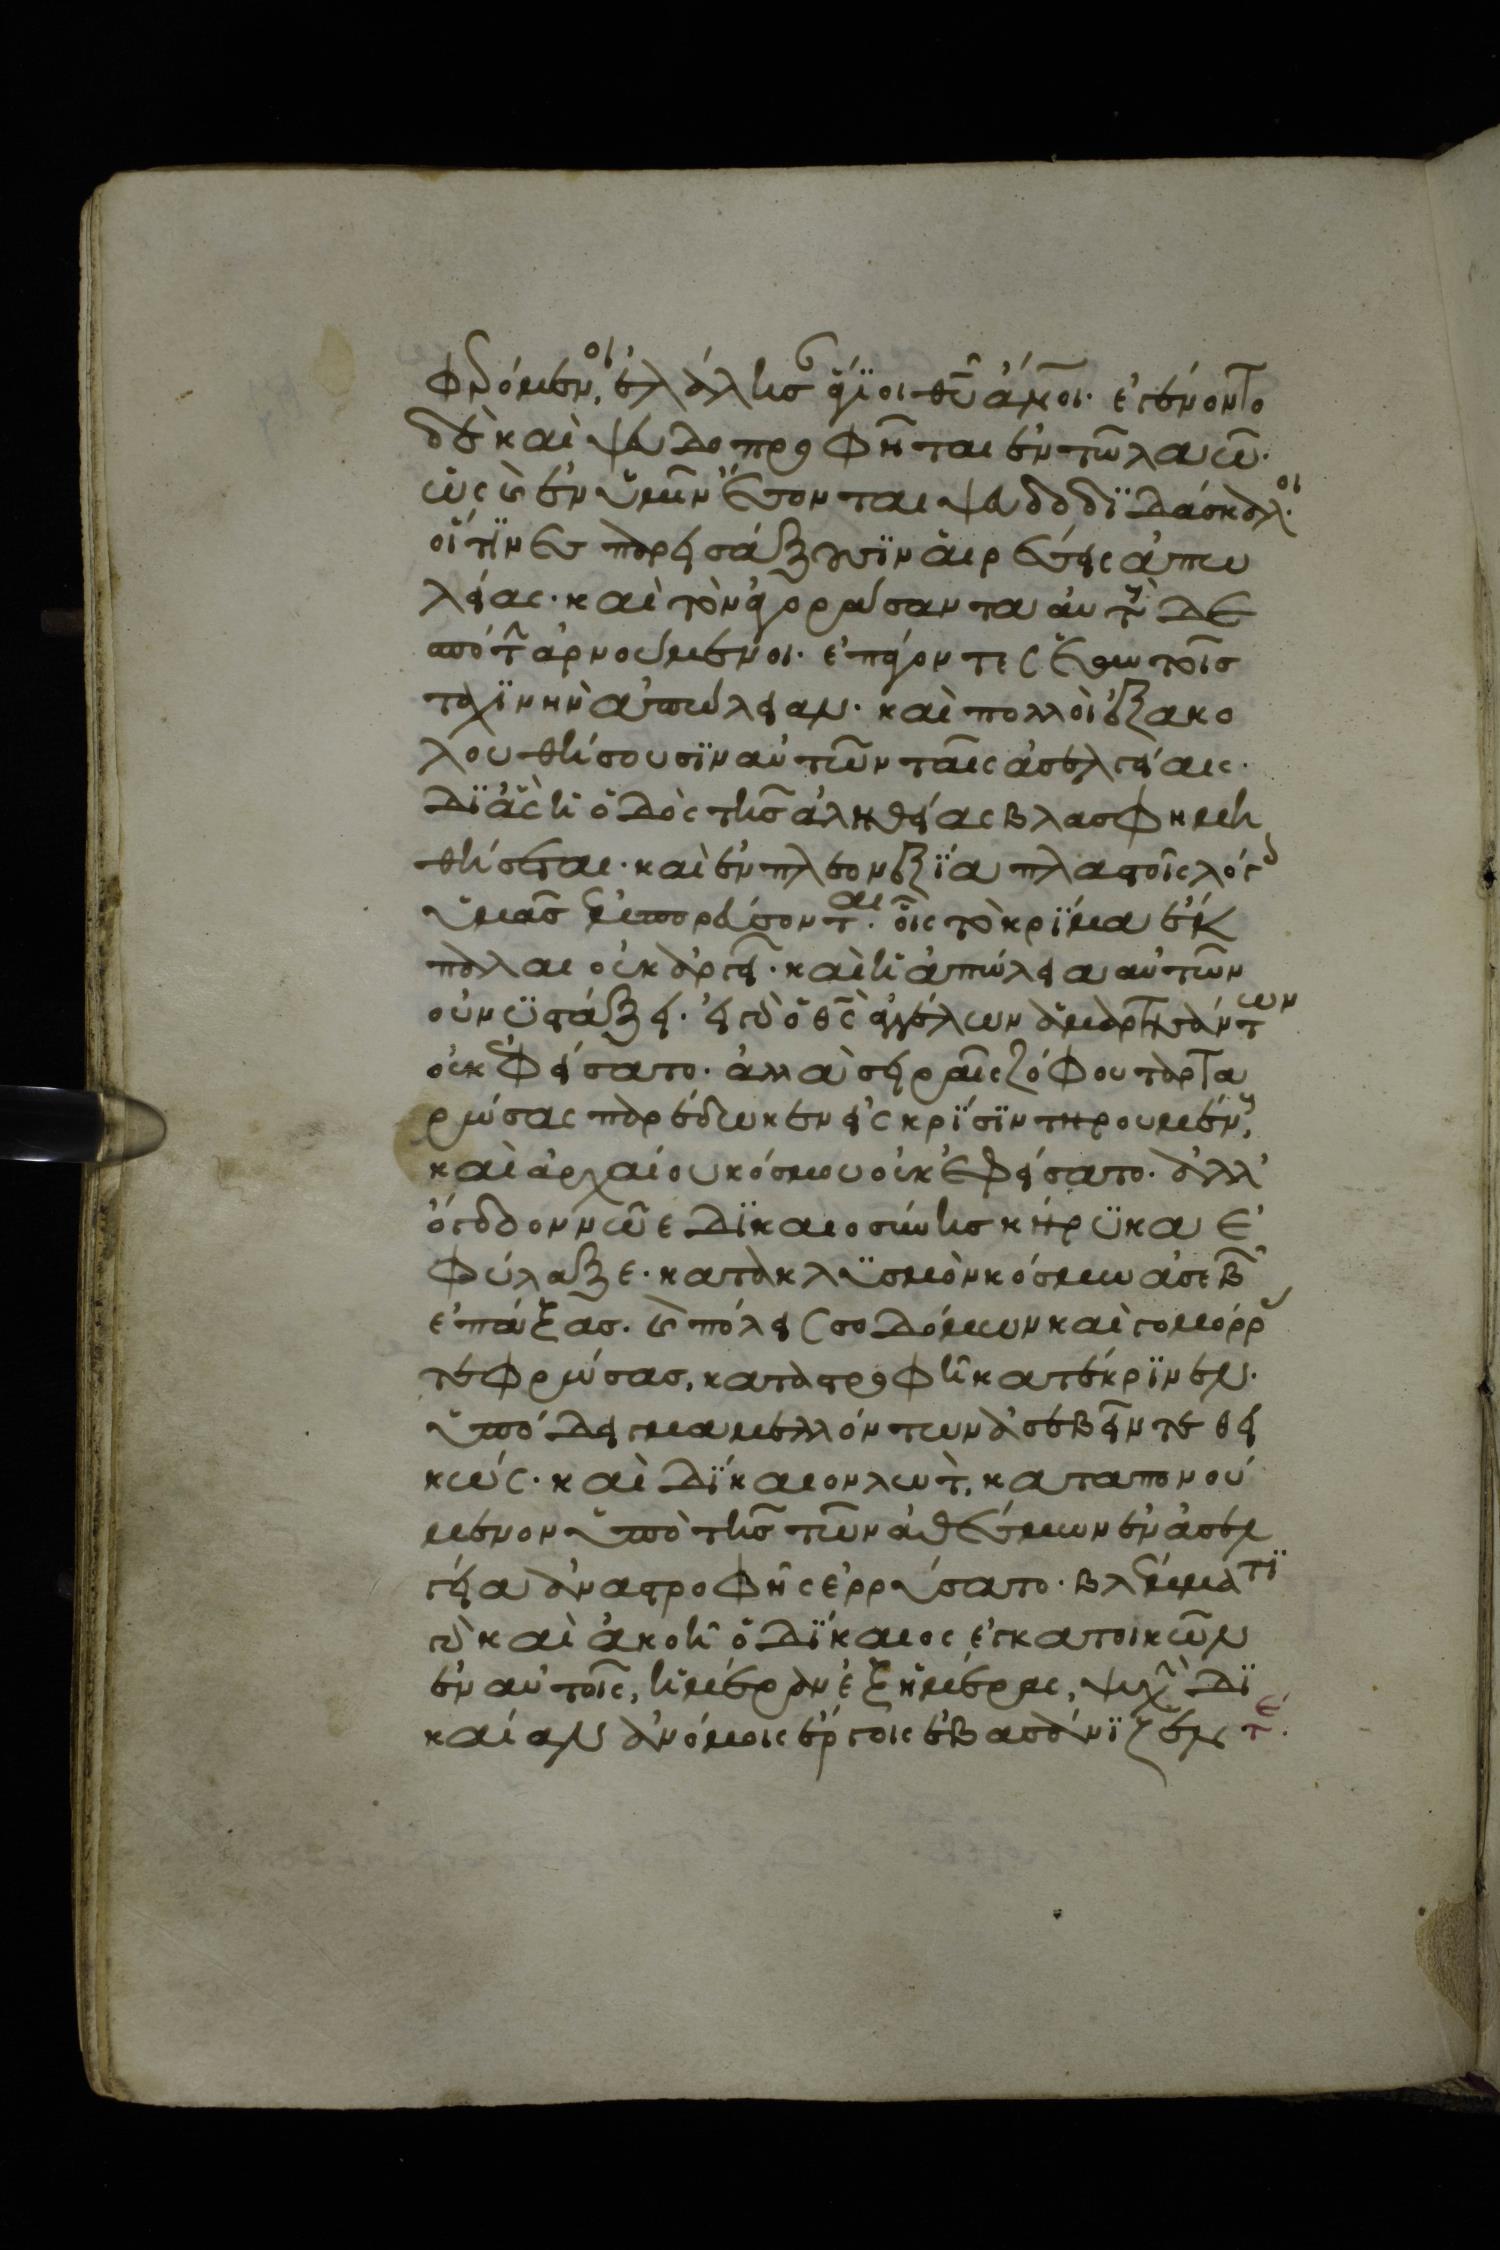 φερόμενοι, ἐλάλησαν ἅγϊοι θῦ ἄνοι. ἐγένοντο
δὲ καὶ ψευδοπροφῆται ἐν τῶ λαῶ.
ὡς καὶ ἐν ὑμῖν ἔσονται ψευδοδϊδάσκαλοι.
οἵτϊνες παρεισάξουσϊν αἱρέσεις ἀπω
λείας. καὶ τὸν ἀγοράσαντα αὐτοὺς δε
σπότην ἀρνούμενοι. ἐπάγοντες ἑαυτοῖς
ταχϊνὴν ἀπώλειαν. καὶ πολλοὶ ἐξακο
λουθήσουσϊν αὐτῶν ταῖς ἀσελγείαις.
δϊ' ἃς ἡ ὁδὸς τῆς ἀληθείας βλασφημη
θήσεται. καὶ ἐν πλεονεξΐα πλαστοῖς λόγοις
ὑμᾶς ἐμπορεύσονται. οἷς τὸ κρϊμα ἔκ
παλαι οὐκ ἀργεῖ. καὶ ἡ ἀπώλεια αὐτῶν
οὐ νϋστάξει. εἰ γὰρ ὁ θς ἀγγέλων ἁμαρτησάντων
οὐκ ἐφείσατο. ἀλλὰ σειραῖς ζόφου ταρτα
ρώσας παρέδωκεν εἰς κρΐσϊν τηρουμένους,
καὶ ἀρχαίου κόσμου οὐκ ἐφείσατο. ἀλλ'
ὄγδοον νῶε δϊκαιοσύνης κήρϋκα ἐ
φύλαξε. κατακλϋσμὸν κόσμω ἀσεβῶν
ἐπάξας. καὶ πόλεις σοδόμων καὶ γομόρρας
τεφρώσας, καταστροφῆ κατέκρϊνεν.
ὑπόδειγμα μελλόντων ἀσεβεῖν τεθει
κώς. καὶ δΐκαιον λωτ, καταπονού
μενον ὑπὸ τῆς τῶν ἀθέσμων ἐν ἀσελ
γεία ἀναστροφῆς ἐρρύσατο. βλέμματϊ
γὰρ καὶ ἀκοῆ ὁ δΐκαιος ἐγκατοικῶν
ἐν αὐτοῖς, ἡμέραν ἐξ ἡμέρας, ψυχὴν δϊ
καίαν ἀνόμοις ἔργοις ἐβασάνϊζεν τε.